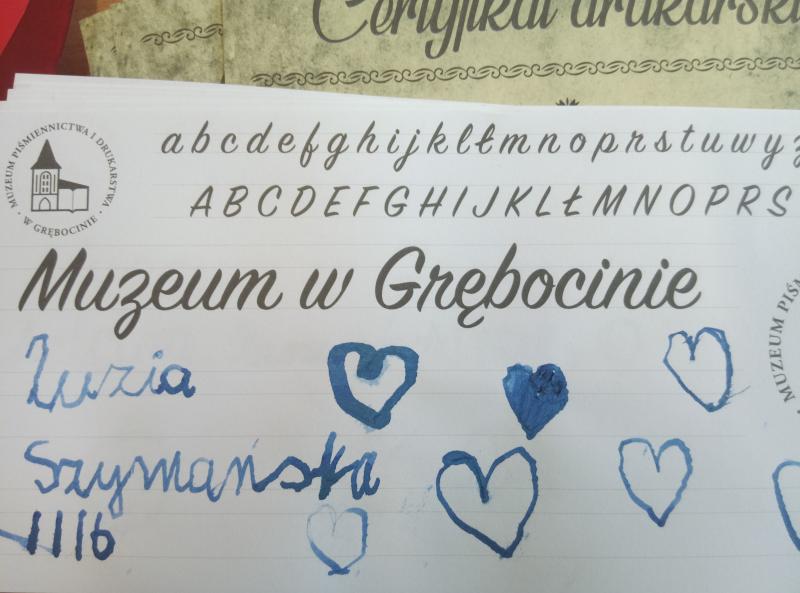 Certyfikat drukarski
MUZEUM PIŚMIENNICTWA I DRUKARSTWA
· W GRĘBOCINIE ·
abcdefghijklłmnoprstuwyz
ABCDEFGHIJKLŁMNOPRS
Muzeum w Grębocinie
MUZEUM PIŚ
Zuzia
Szymańska
IIIb